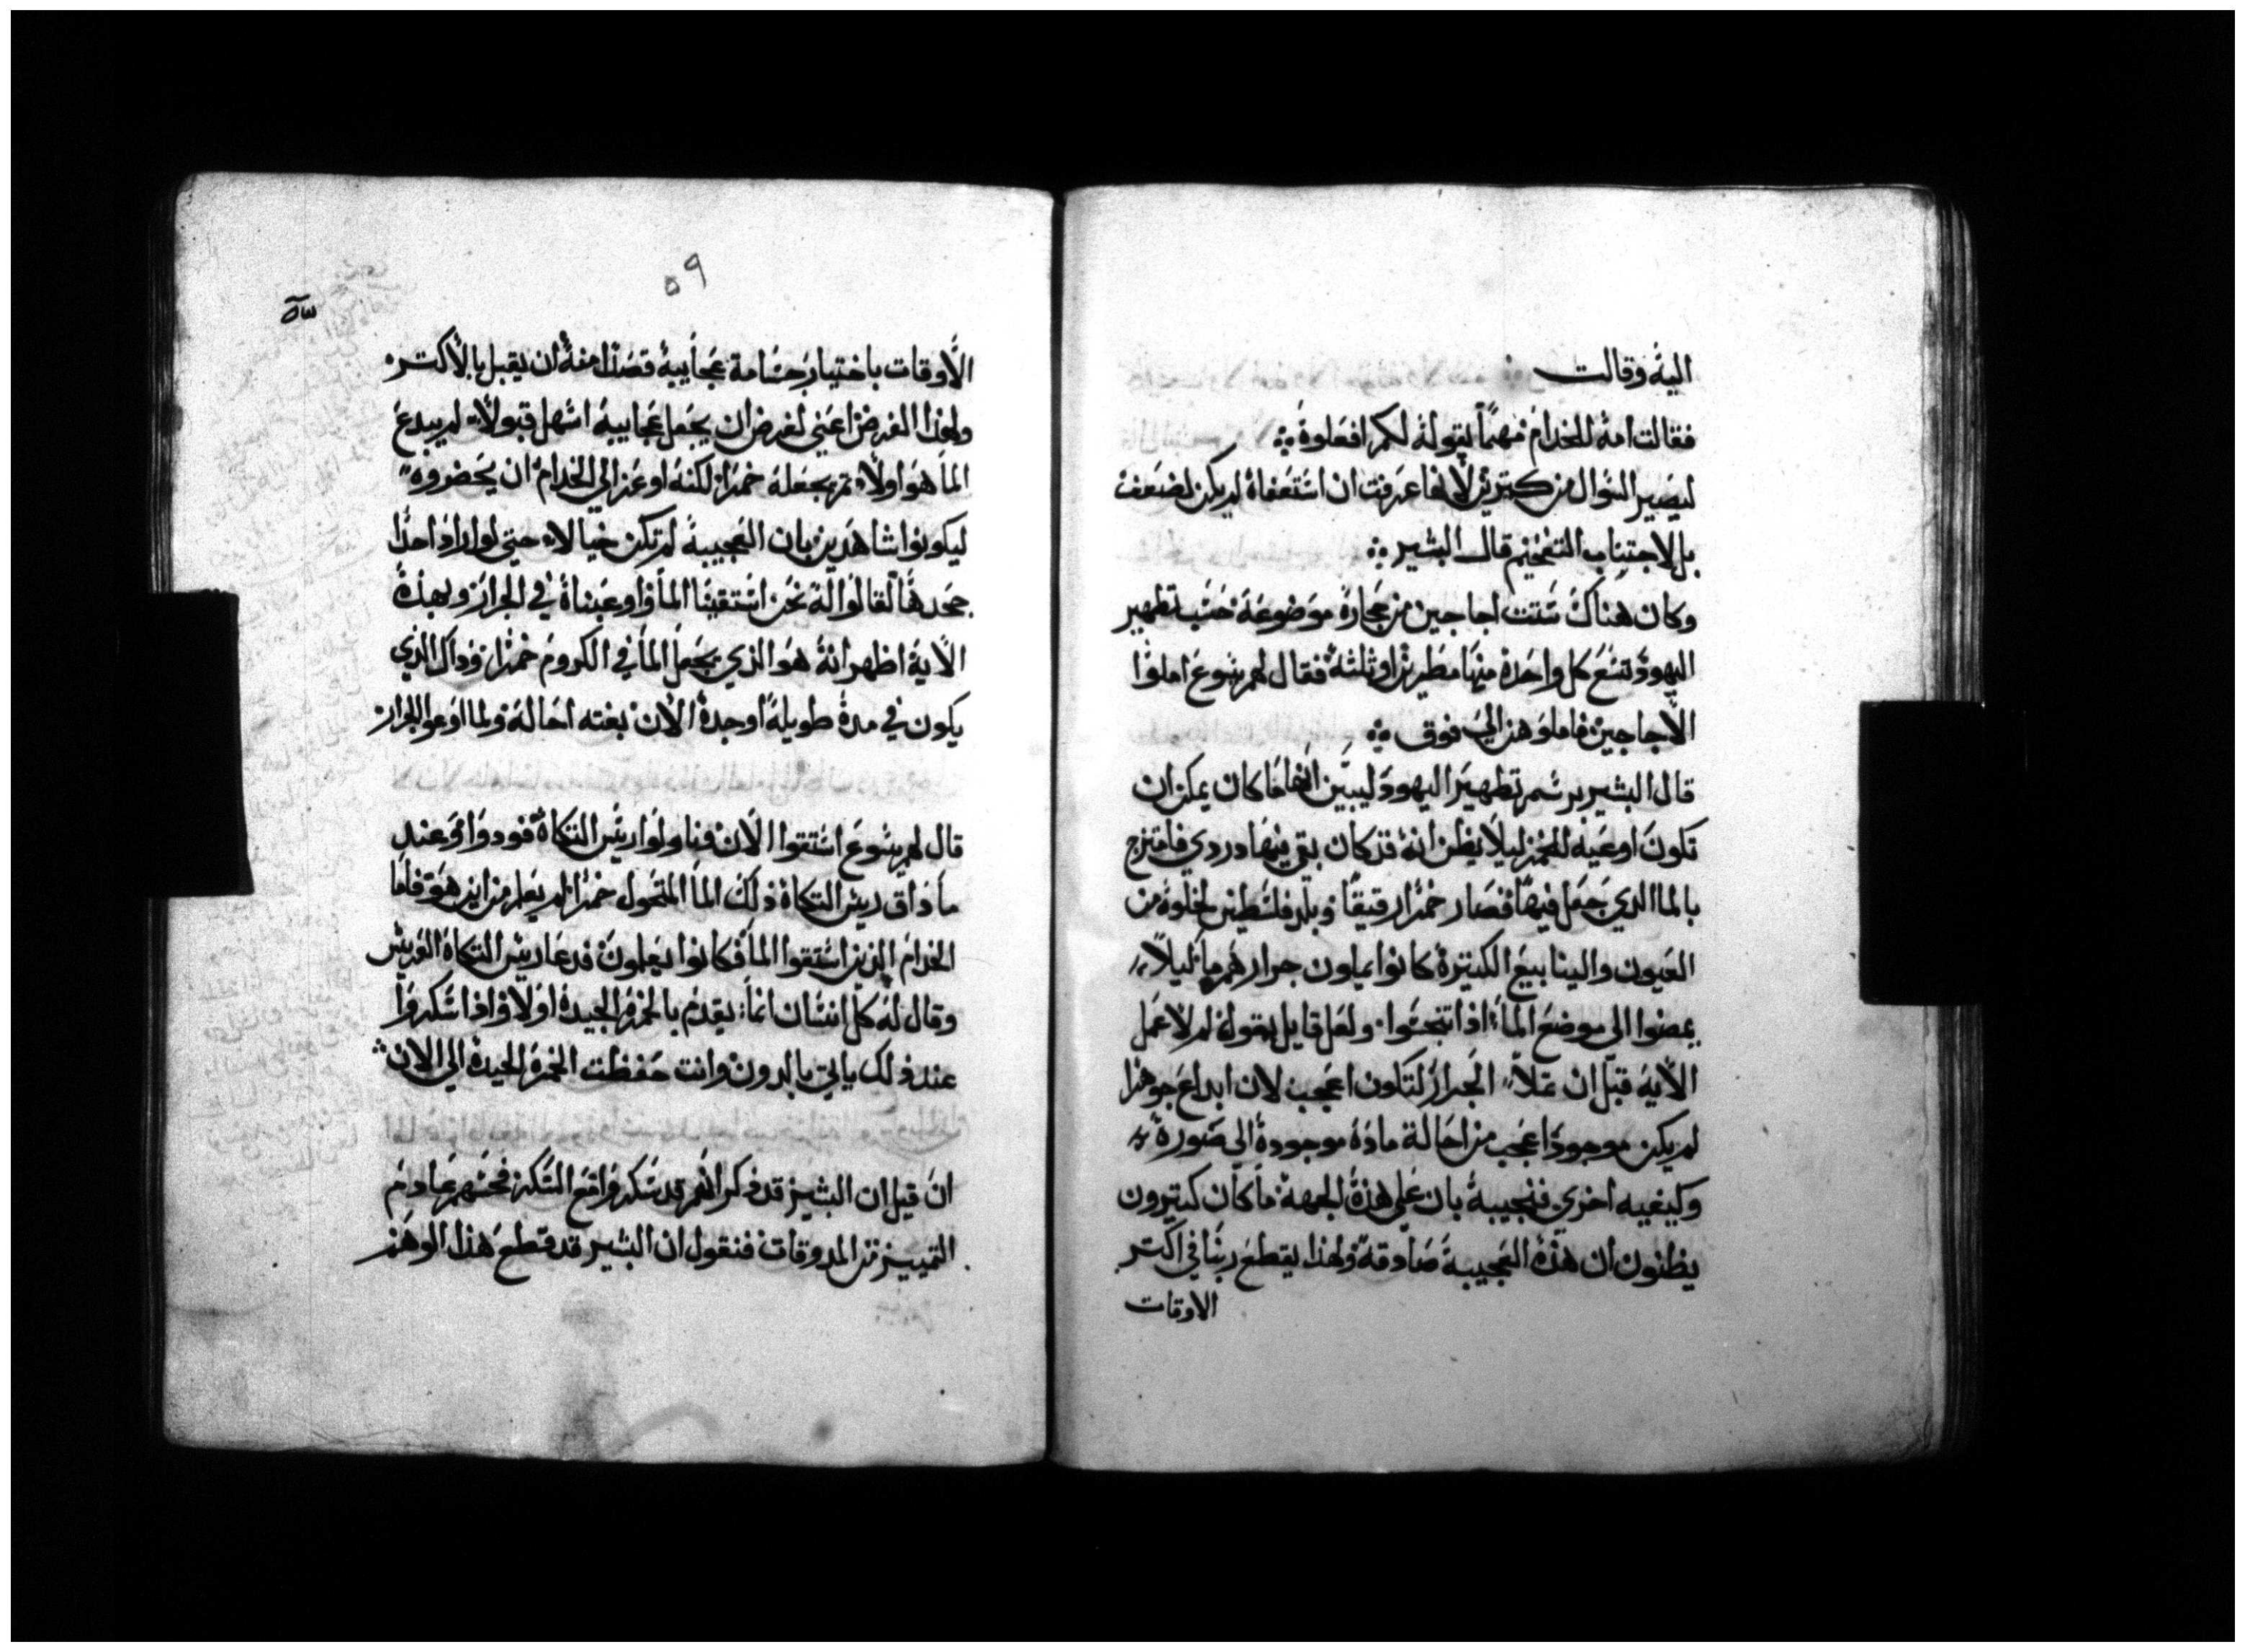 اليه وقالت
فقالت امه للخدام مهما يقوله لكم افعلوه
ليصير السوال من كتيرين لانها عرفت ان استعفاه لم يكن لضعف
بل لاجتناب التفخيم قال البشير
وكان هناك ستت اجاجين من حجاره موضوعه حسب تطهير
اليهود تسع كل واحده منها مطرين او ثلثه فقال لهم يسوع املوا
الاجاجين فاملوهن الي فوق
قال البشير برسم تطهير اليهود ليبين انها ما كان يمكن ان
تكون اوعيه للخمر ليلا يظن انه قد كان بقي فيها دردي فامتزج
بالما الدي جعل فيها فصار خمرا رقيقا وبلد فلسطين لخلوه من
العيون والينابيع الكتيرة كانوا يملون جرارهم ما ليلا
يمضوا الي موضع الما اذا تنجسوا ولعل قايل يقول لم لا عمل
الايه قبل ان تملا الجرار لتكون اعجب لان ابداع جوهرا
لم يكن موجودا اعجب من احالة مادة موجودة الي صورة
وكيفيه اخري فنجيبه بان علي هذه الجهة ما كان كتيرون
يظنون ان هذه العجيبة صادقة ولهذا يقطع ربنا في اكتر
الاوقات
٥٩
الاوقات باختيار جسامة عجاييبه قصدا منه ان يقبل بالاكتر
ولهذا الغرض اعني لغرض ان يجعل عجاييبه اسهل قبولا لم يبدع
الما هو اولا تم يجعله خمرا لكنه اوعز الي الخدام ان يحضروه
ليكونوا شاهدين بان العجيبة لم تكن خيالا حتي لو اراد احدا
جحدها لقالوا له نحن استقينا الما واوعيناه في الجرار وبهذه
الاية اظهر انه هو الذي يجعل الما في الكروم خمرا وداك الذي
يكون في مدة طويلة اوجده الان بغته احاله ولما اوعوا الجرار
قال لهم يسوع استقوا الان وناولوا رييس التكاة
ما داق رييس التكاة ذلك الما المتحول خمرا لم يعلم من اين هو فاما
الخدام الذين استقوا الما فكانوا يعلمون فدعا رييس التكاة العريس
وقال له كل انسان انما يقدم بالخمرة الجيدة اولا واذا سكروا
عند ذلك ياتي بالدون وانت حفظت الخمرة الجيدة الي الان
ان قيل ان البشير قد ذكر انهم قد سكروا ومع السكر فحسهم عادم
التمييز المدوقات فنقول ان البشير قد قطع هذا الوهم